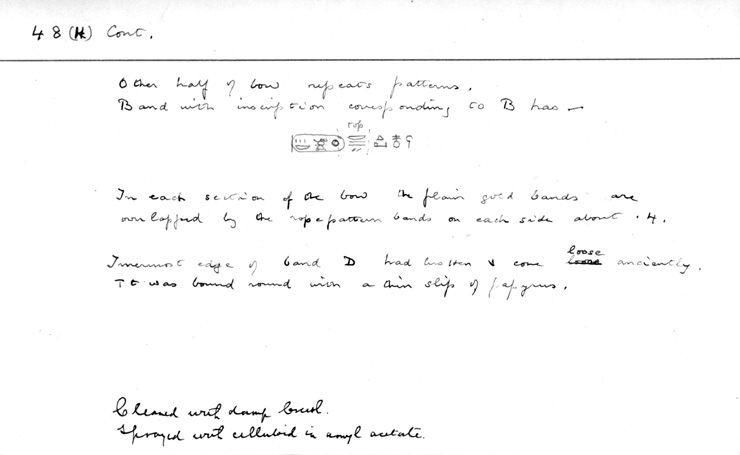 48(H) Cont.
Other half of bow repeats patterns.
Band with inscription corresponding to B has —
top
In each section of the bow the plain gold bands are
overlapped by the rope pattern bands on each side about .4.
Innermost edge of band D had broken & come loose anciently.
It was bound round with a thin slip of papyrus.
Cleaned with damp brush.
Sprayed with celluloid in amyl acetate.